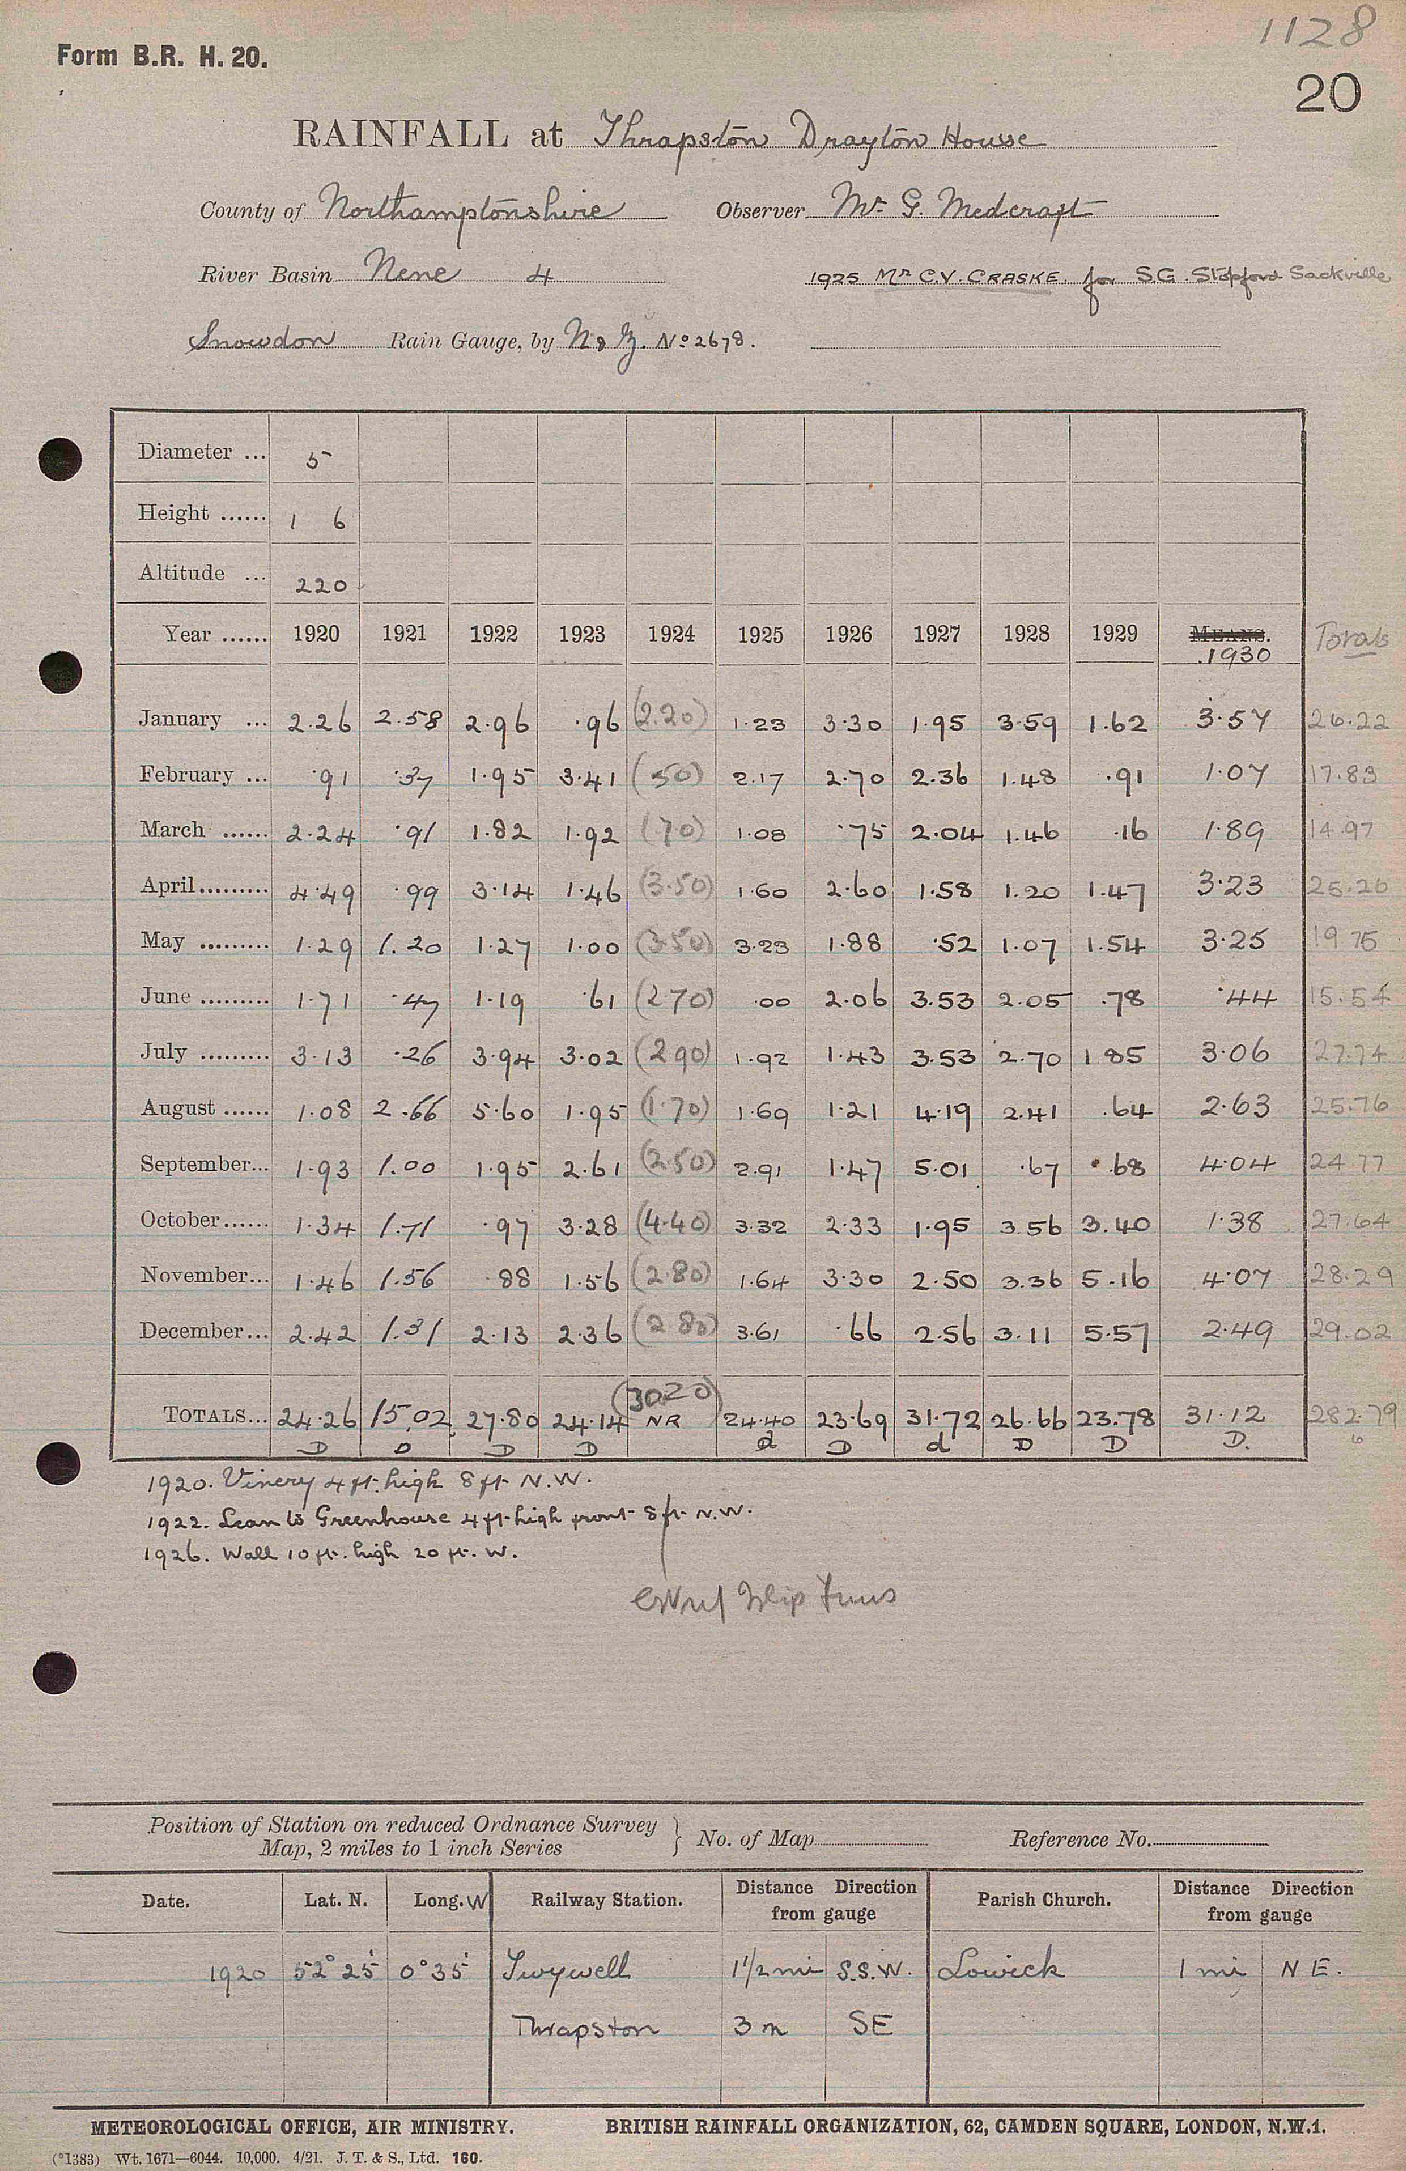 1128
Form B.R. H. 20.
20
RAINFALL at Thrapston Drayton House
County of Northamptonshire Observer Mr. G. Medcraft
River Basin Nene 4 1925 Mr C.V. CRASKE for S.G. Stopford Sackville
Snowdon Rain Gauge, by N & Z. No 2678.
Diameter ... 5
Height ...... 1 6
Altitude ... 220
Year ...... 1920 1921 1922 1923 1924 1925 1926 1927 1928 1929 MEANS. 1930 Totals
January ... 2.26 2.58 2.96 .96 (2.20) 1.23 3.30 1.95 3.59 1.62 3.57 26.22
February ... .91 .37 1.95 3.41 (.50) 2.17 2.70 2.36 1.48 .91 1.07 17.83
March ...... 2.24 .91 1.82 1.92 (.70) 1.08 .75 2.04 1.46 .16 1.89 14.97
April......... 4.49 .99 3.14 1.46 (3.50) 1.60 2.60 1.58 1.20 1.47 3.23 25.26
May ......... 1.29 1.20 1.27 1.00 (3.50) 3.23 1.88 .52 1.07 1.54 3.25 19.75
June ......... 1.71 .47 1.19 .61 (2.70) .00 2.06 3.53 2.05 .78 .44 15.54
July ......... 3.13 .26 3.94 3.02 (2.90) 1.92 1.43 3.53 2.70 1.85 3.06 27.74
August ...... 1.08 2.66 5.60 1.95 (1.70) 1.69 1.21 4.19 2.41 .64 2.63 25.76
September... 1.93 1.00 1.95 2.61 (2.50) 2.91 1.47 5.01 .67 .68 4.04 24.77
October...... 1.34 1.71 .97 3.28 (4.40) 3.32 2.33 1.95 3.56 3.40 1.38 27.64
November... 1.46 1.56 .88 1.56 (2.80) 1.64 3.30 2.50 3.36 5.16 4.07 28.29
December... 2.42 1.31 2.13 2.36 (2.80) 3.61 .66 2.56 3.11 5.57 2.49 29.02
(30.20)
TOTALS... 24.26 15.02 27.80 24.14 NR 24.40 23.69 31.72 26.66 23.78 31.12 282.79
D D D D d D d D D D. 6
1920. Vinery 4 ft. high 8 ft N.W.
1922. Lean to Greenhouse 4 ft high front 8 ft N.W.
1926. Wall 10 ft. high 20 ft. W.
Position of Station on reduced Ordnance Survey
Map, 2 miles to 1 inch Series } No. of Map Reference No.
Date. Lat. N. Long. W Railway Station. Distance Direction from gauge Parish Church. Distance Direction from gauge
1920 52° 25' 0° 35' Twywell 1 1/2 mi S.S.W. Lowick 1 mi N E.
Thrapston 3 m SE
METEOROLOGICAL OFFICE, AIR MINISTRY. BRITISH RAINFALL ORGANIZATION, 62, CAMDEN SQUARE, LONDON, N.W.1.
(*1383) Wt. 1671—6044. 10,000. 4/21. J. T. & S., Ltd. 160.